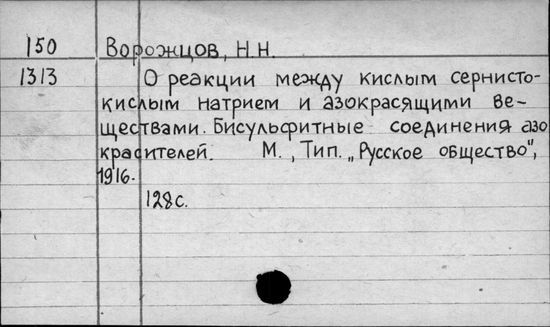 150 Ворожцов, Н.Н.
1313 О реакции между кислым сернисто-
кислым натрием и азокрасящими ве-
ществами. Бисульфитные соединения азо
красителей. М., Тип. „Русское общество",
1916.
128с.